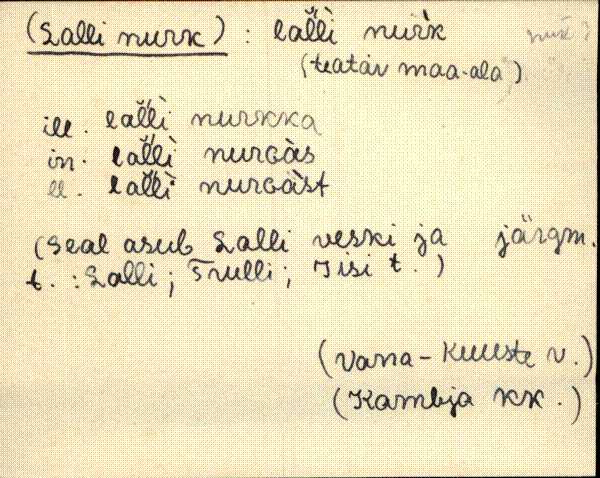 (Lalli nurk) : lal̆l̆ì nur̀k
(teatav maa-ala)
ill. lal̆l̆ì nurkka
in. lal̆l̆ì nurgàs
el. lal̆l̆ì nurgàst
(Seal asub Lalli veski ja järgm.
t. : Lalli; Trulli; Iisi t.)
(Vana-Kuuste v.)
(Kambja kk.)